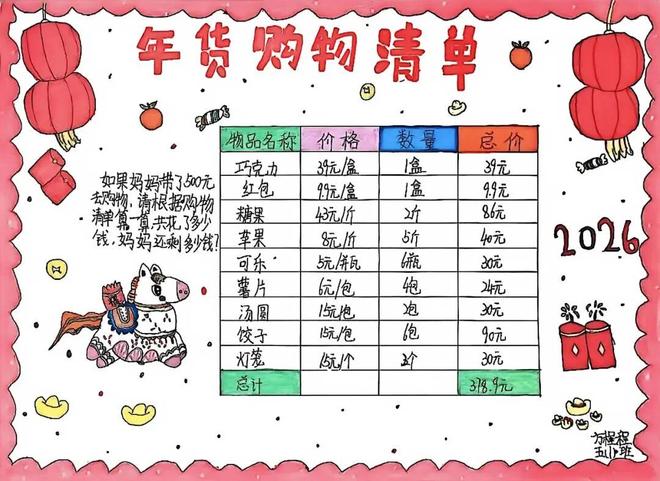 年货购物清单
如果妈妈带了500元
去购物，请根据购物
清单算一算，共花了多少
钱，妈妈还剩多少钱？
物品名称 价格 数量 总价
巧克力 39元/盒 1盒 39元
红包 9.9元/盒 1盒 9.9元
糖果 43元/斤 2斤 86元
苹果 8元/斤 5斤 40元
可乐 5元/瓶 6瓶 30元
薯片 6元/包 4包 24元
汤圆 15元/包 2包 30元
饺子 15元/包 6包 90元
灯笼 15元/个 2个 30元
总计 378.9元
2026
方程程